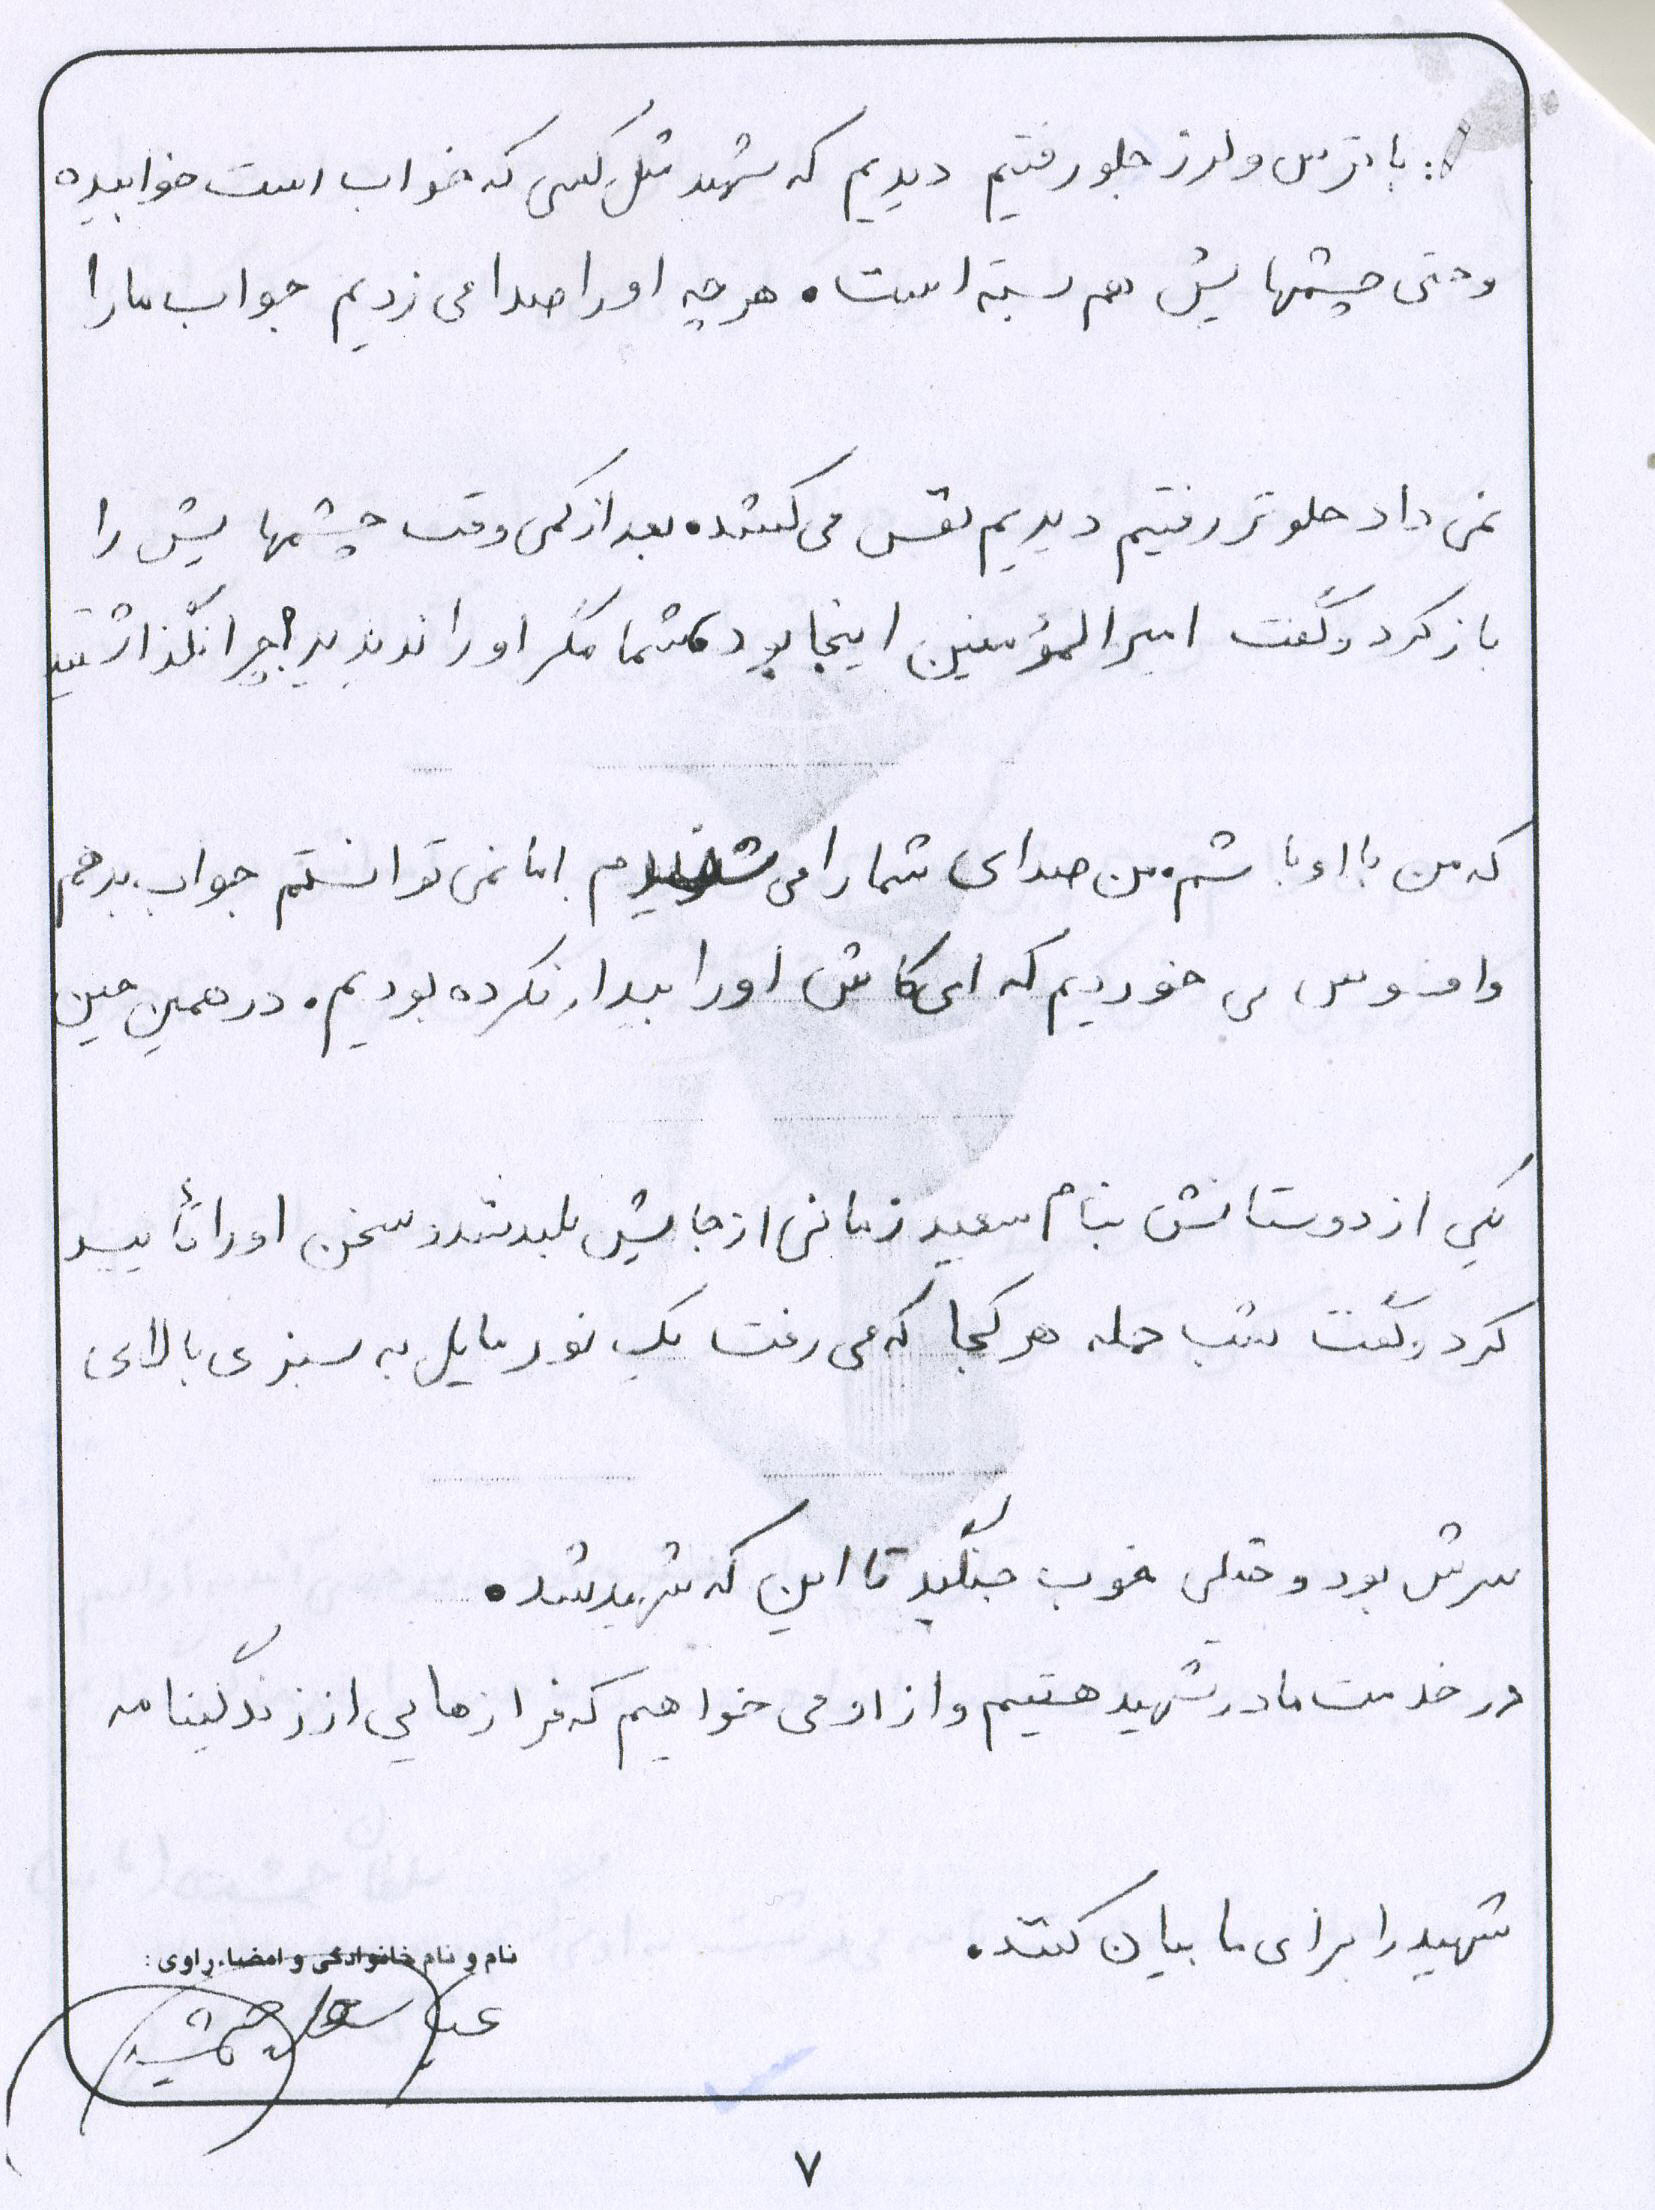 : با ترس و لرز جلو رفتیم دیدیم که شهید مثل کسی که خواب است خوابیده
و حتی چشمهایش هم بسته است. هر چه او را صدا می زدیم جواب ما را
نمی داد جلوتر رفتیم دیدیم نفس می کشد. بعد از کمی وقت چشمهایش را
باز کرد و گفت امیرالمؤمنین اینجا بود، شما مگر او را ندیدید؟ چرا نگذاشتید
که من با او باشم. من صدای شما را می شنیدم اما نمی توانستم جواب بدهم
و افسوس می خوردیم که ای کاش او را بیدار نکرده بودیم. در همین حین
یکی از دوستانش بنام سعید زمانی از جایش بلند شد و سخن او را تأیید
کرد و گفت شب حمله هر کجا که می رفت یک نور مایل به سبزی بالای
سرش بود و خیلی خوب جنگید تا این که شهید شد.
در خدمت مادر شهید هستیم و از او می خواهیم که فرازهایی از زندگینامه
شهید را برای ما بیان کنند.
نام و نام خانوادگی و امضاء راوی:
۷